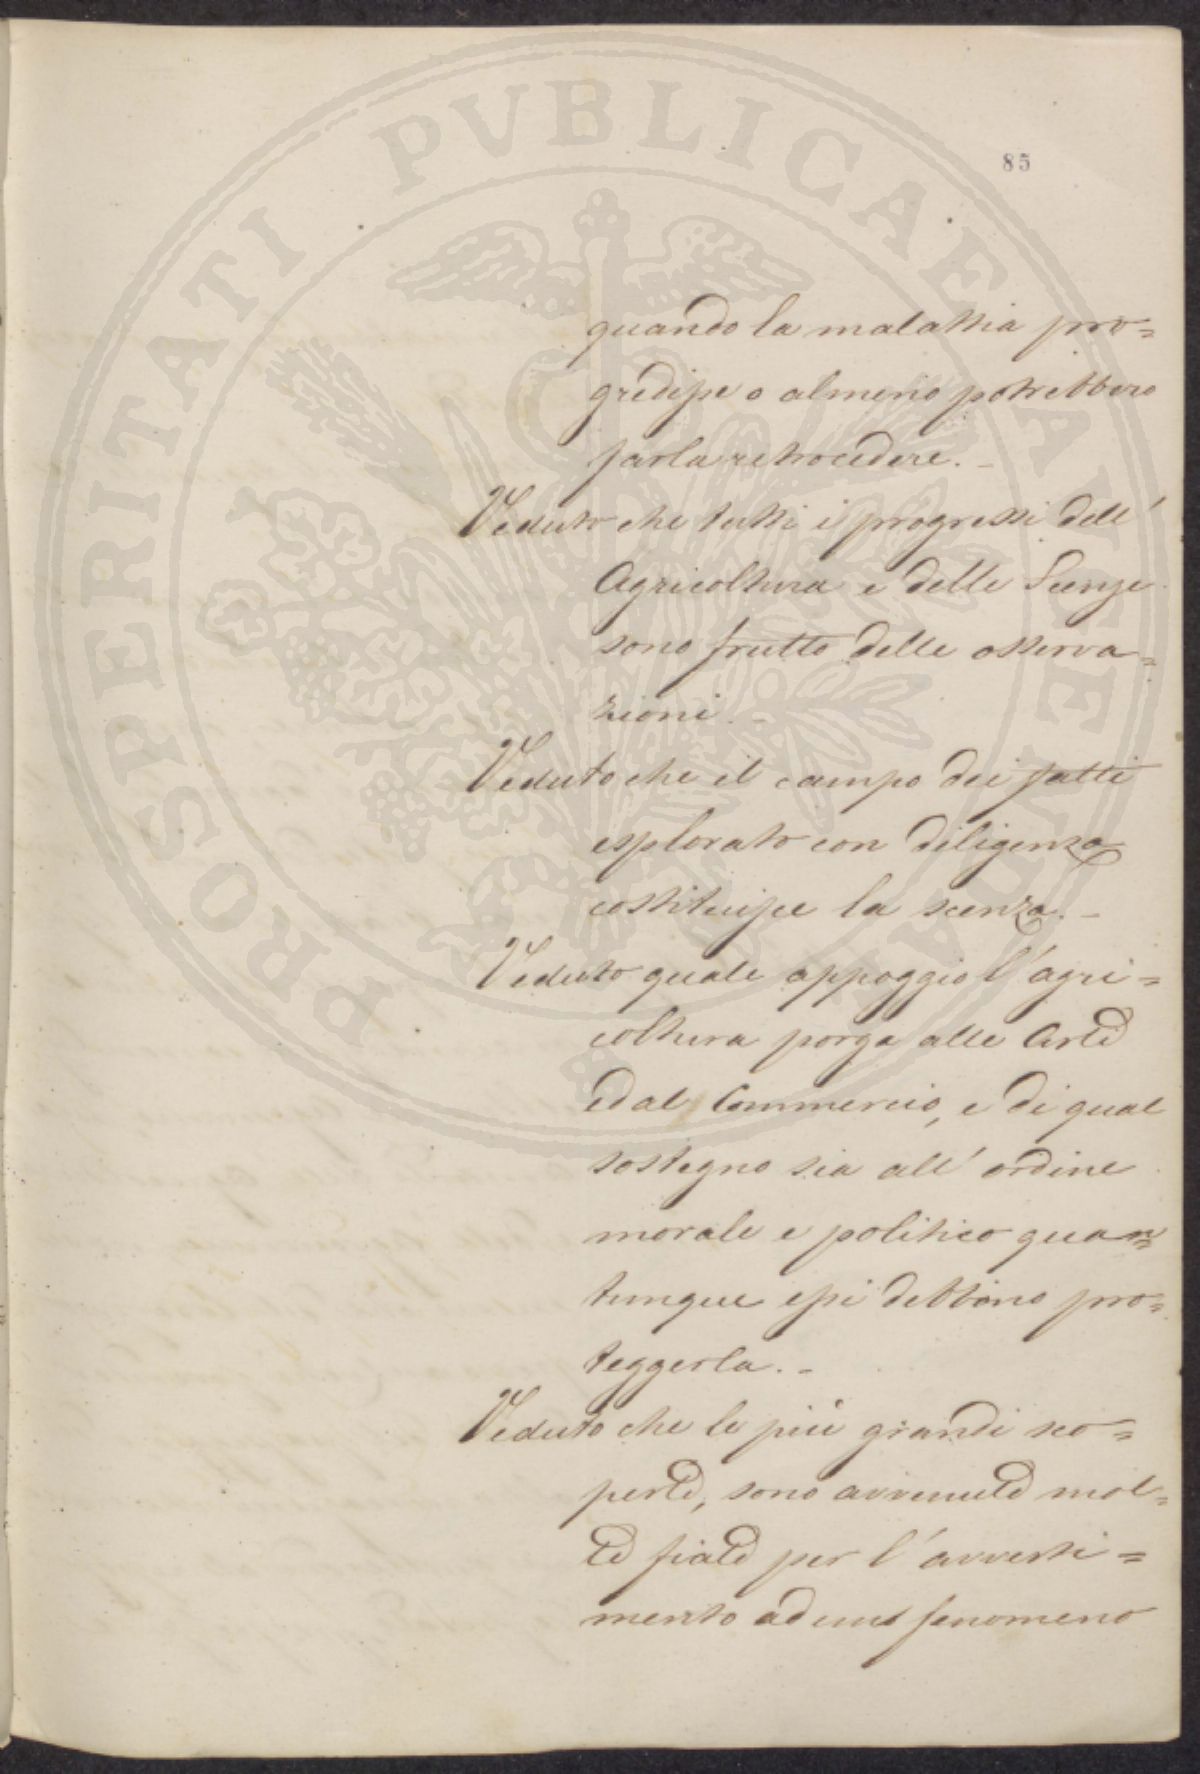 85
quando la malattia pro=
gredisse o almeno potrebbero
farla retrocedere. -
Veduto che tutti i progressi dell'
Agricoltura e delle Scenze
sono frutto delle osserva=
zioni. -
Veduto che il campo dei fatti
esplorato con diligenza
costituisse la scenza. -
Veduto quale appoggio l'agri=
coltura porga alle Arti
ed al Commercio, e di qual
sostegno sia all' ordine
morale e politico quan=
tunque essi debbono pro=
teggerla. -
Veduto che le più grandi sco=
perte, sono avvenute mol=
te fiate per l'avverti=
mento ad uno fenomeno
PROSPERITATI PVBLICAE AVGENDAE